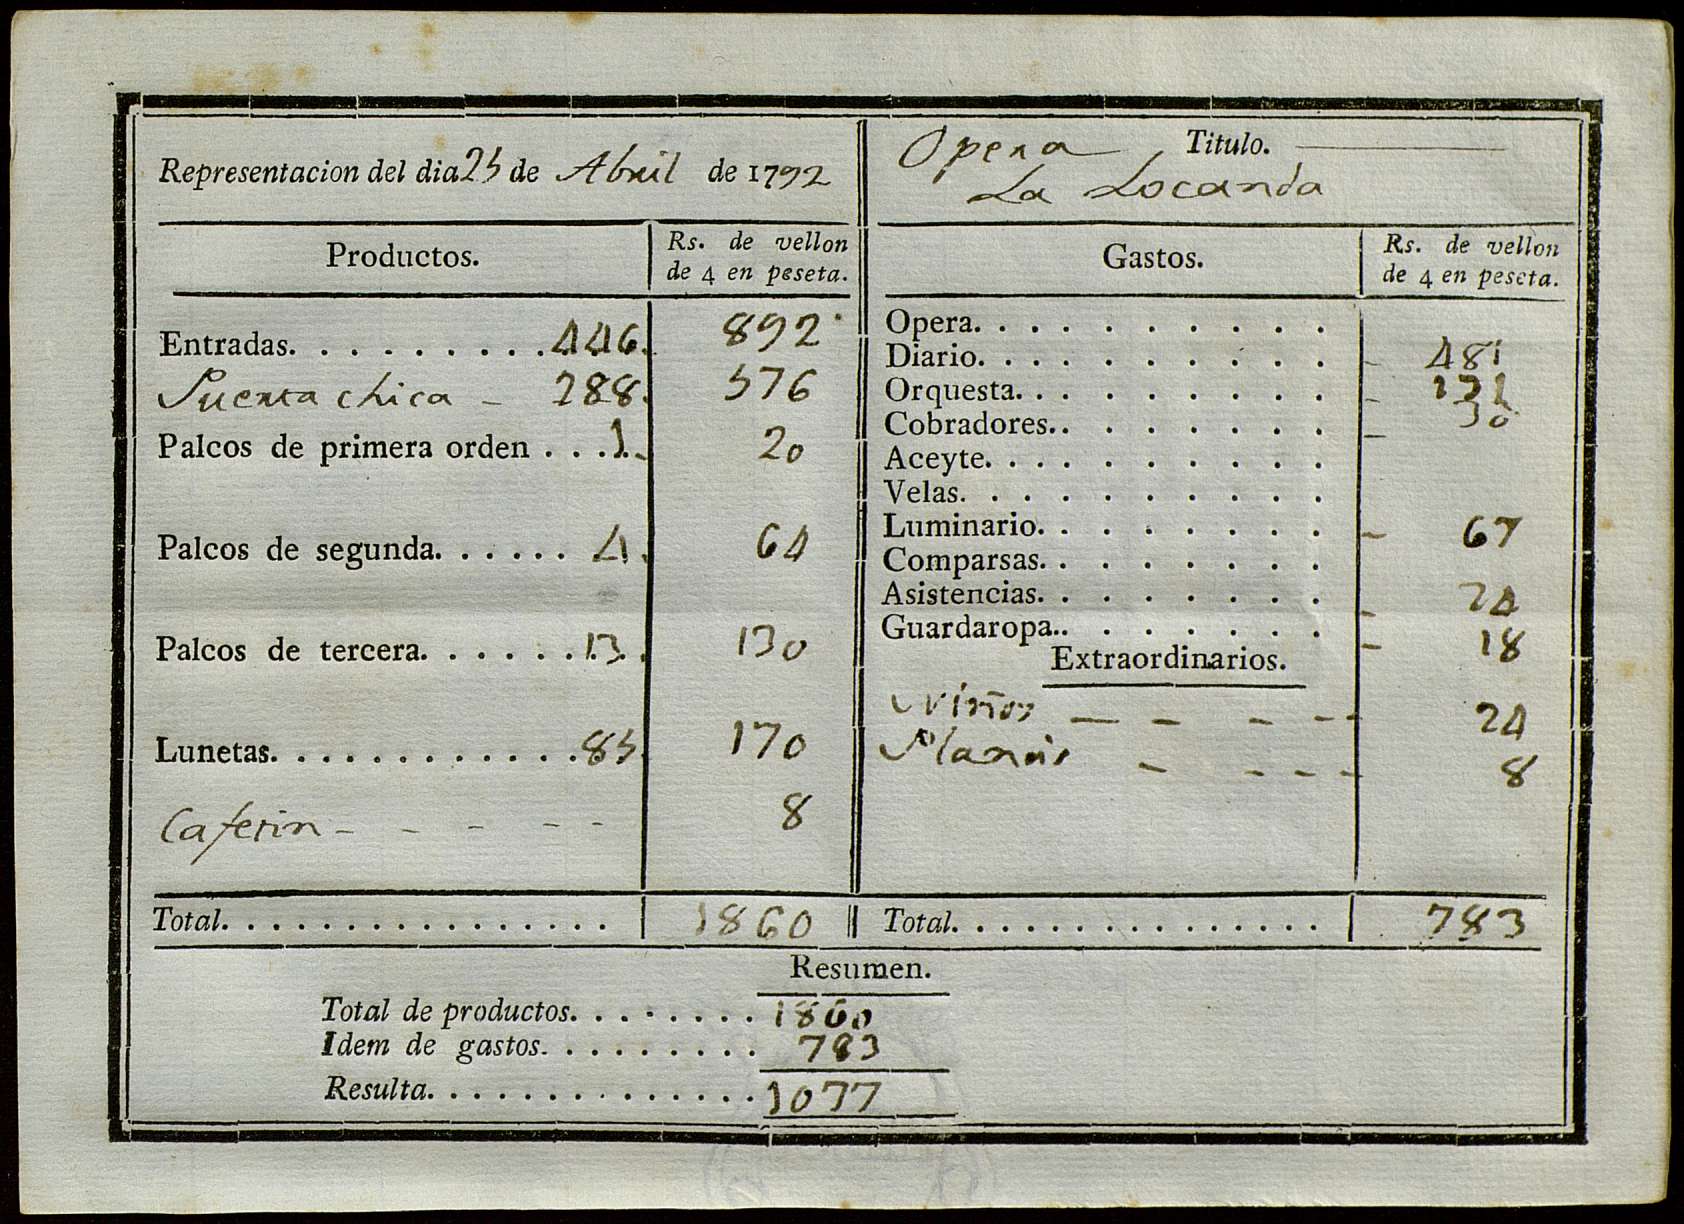 Representacion del dia 25 de Abril de 1792
Opera Titulo.
La Locanda
Productos. Rs. de vellon de 4 en peseta.
Gastos. Rs. de vellon de 4 en peseta.
Entradas. . . . . . . . . . 446. 892
Puerta chica - 288. 576
Palcos de primera orden . . . 1. 20
Palcos de segunda. . . . . . 4. 64
Palcos de tercera. . . . . . . 13. 130
Lunetas. . . . . . . . . . . . . 85. 170
Cafetin - - - - - 8
Total. . . . . . . . . . . . . . . . 1860
Opera. . . . . . . . . . .
Diario. . . . . . . . . . . 481
Orquesta. . . . . . . . . . 131
Cobradores. . . . . . . . 30
Aceyte. . . . . . . . . . .
Velas. . . . . . . . . . .
Luminario. . . . . . . . . 67
Comparsas. . . . . . . . .
Asistencias. . . . . . . . . 24
Guardaropa. . . . . . . . 18
Extraordinarios.
Niños - - - - - 24
- - - - 8
Total. . . . . . . . . . . . . . . . 783
Resumen.
Total de productos. . . . . . . . 1860
Idem de gastos. . . . . . . . . 783
Resulta. . . . . . . . . . . . . . 1077